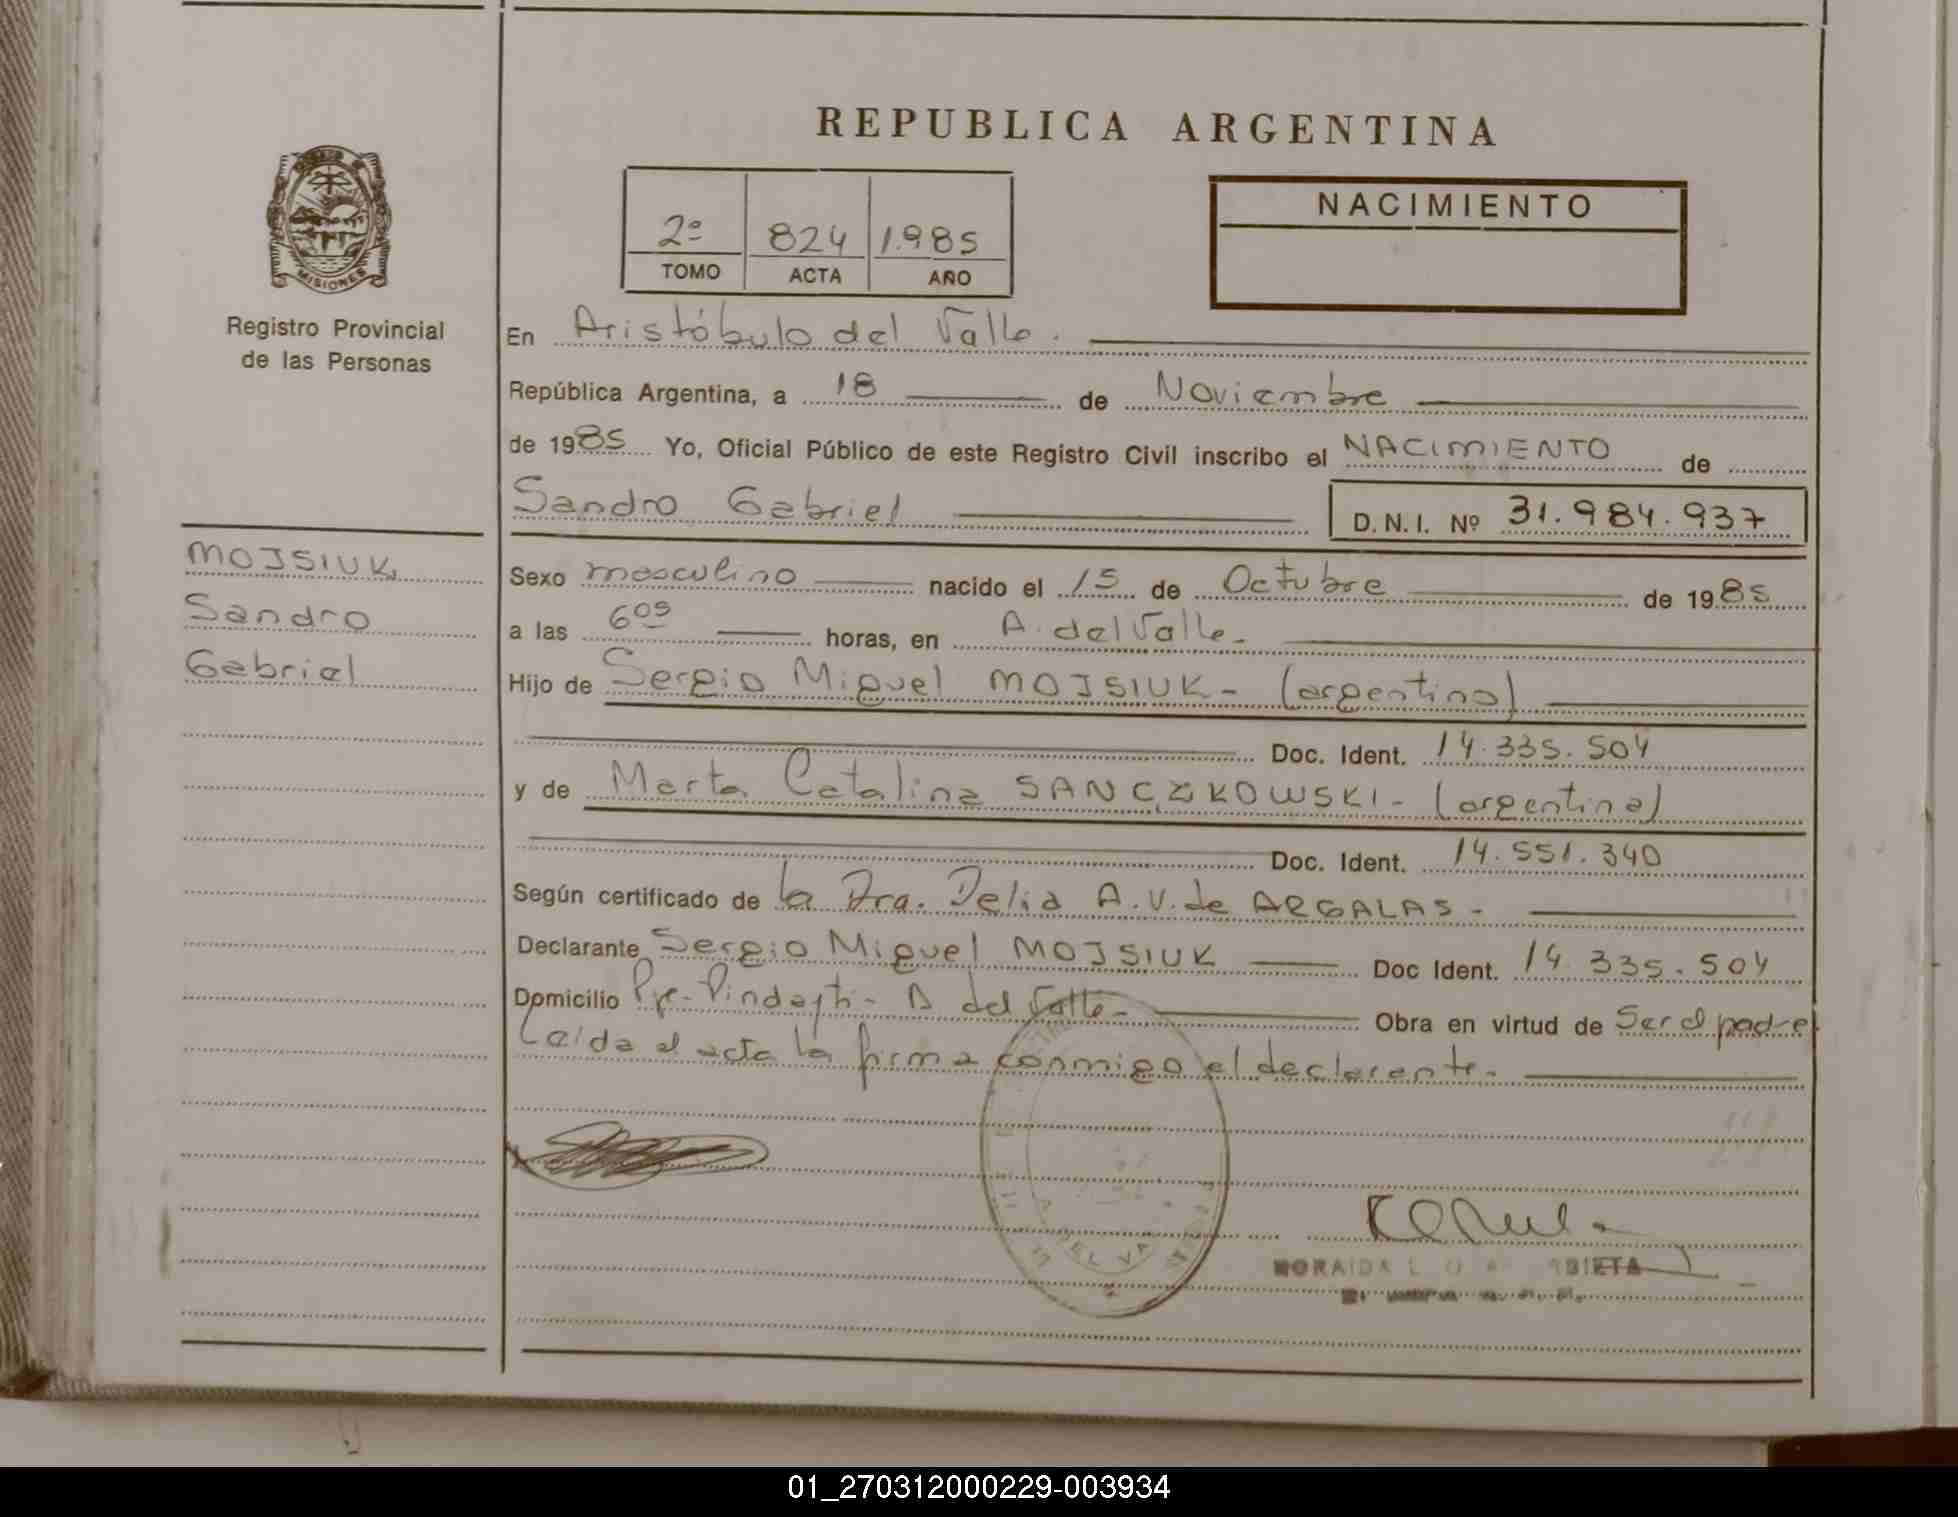 REPUBLICA ARGENTINA
MISIONES
Registro Provincial
de las Personas
2º 824 1.985
TOMO ACTA AÑO
NACIMIENTO
En Aristóbulo del Valle.
República Argentina, a 18 de Noviembre
de 1985 Yo, Oficial Público de este Registro Civil inscribo el NACIMIENTO de
Sandro Gabriel D.N.I. Nº 31.984.937
MOJSIUK
Sandro
Gabriel
Sexo masculino nacido el 15 de Octubre de 1985
a las 6 05 horas, en A. del Valle.
Hijo de Sergio Miguel MOJSIUK - (argentino)
Doc. Ident. 14.335.504
y de Marta Catalina SANCZKOWSKI - (argentina)
Doc. Ident. 14.551.340
Según certificado de la Dra. Delia A.V. de ARGALAS -
Declarante Sergio Miguel MOJSIUK Doc Ident. 14.335.504
Domicilio del Valle - Obra en virtud de Ser el padre
Leída el acta la firma conmigo el declarante.
DEL VA
NORAIDA L
01_270312000229-003934